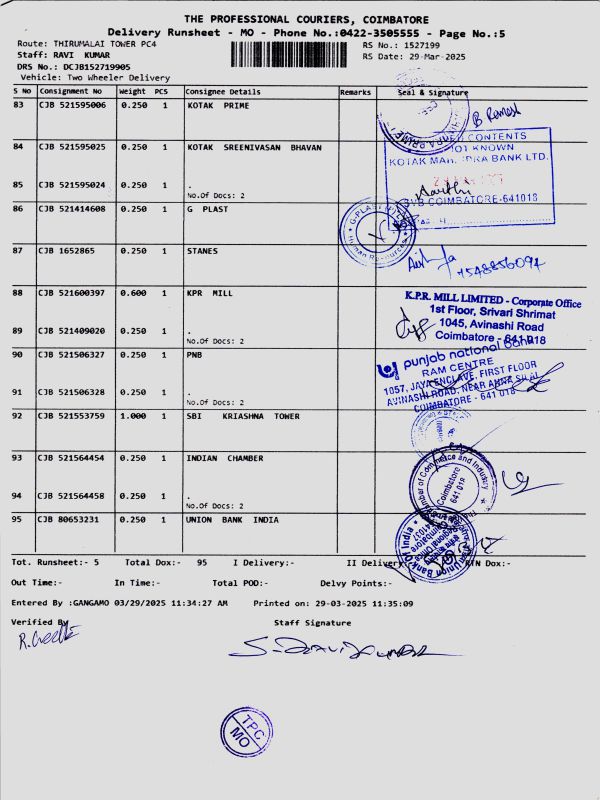 THE PROFESSIONAL COURIERS, COIMBATORE
Delivery Runsheet - MO - Phone No.:0422-3505555 - Page No.:5
Route: THIRUMALAI TOWER PC4
RS No.: 1527199
Staff: RAVI KUMAR
RS Date: 29-Mar-2025
DRS No.: DCJB152719905
Vehicle: Two Wheeler Delivery
S No Consignment No Weight PCS Consignee Details Remarks Seal & Signature
83 CJB 521595006 0.250 1 KOTAK PRIME
B Ramesh
84 CJB 521595025 0.250 1 KOTAK SREENIVASAN BHAVAN
CONTENTS
NOT KNOWN
KOTAK MAHINDRA BANK LTD.
85 CJB 521595024 0.250 1 .
No.Of Docs: 2
SVB COIMBATORE-641018
86 CJB 521414608 0.250 1 G PLAST
Human Resources
87 CJB 1652865 0.250 1 STANES
88 CJB 521600397 0.600 1 KPR MILL
K.P.R. MILL LIMITED - Corporate Office
1st Floor, Srivari Shrimat
1045, Avinashi Road
Coimbatore - 641 018
89 CJB 521409020 0.250 1 .
No.Of Docs: 2
90 CJB 521506327 0.250 1 PNB
punjab national bank
RAM CENTRE
1057, JAYA ENCLAVE, FIRST FLOOR
AVINASHI ROAD, NEAR ANNA
COIMBATORE - 641 018
91 CJB 521506328 0.250 1 .
No.Of Docs: 2
92 CJB 521553759 1.000 1 SBI KRIASHNA TOWER
93 CJB 521564454 0.250 1 INDIAN CHAMBER
Chamber of Commerce and Industry
Coimbatore
641 018
94 CJB 521564458 0.250 1 .
No.Of Docs: 2
95 CJB 80653231 0.250 1 UNION BANK INDIA
Union Bank of India
Tot. Runsheet:- 5 Total Dox:- 95 I Delivery:- II Delivery:- RTN Dox:-
Out Time:- In Time:- Total POD:- Delvy Points:-
Entered By :GANGAMO 03/29/2025 11:34:27 AM Printed on: 29-03-2025 11:35:09
Verified By
Staff Signature
S. RAVIKUMAR
TPC
MO